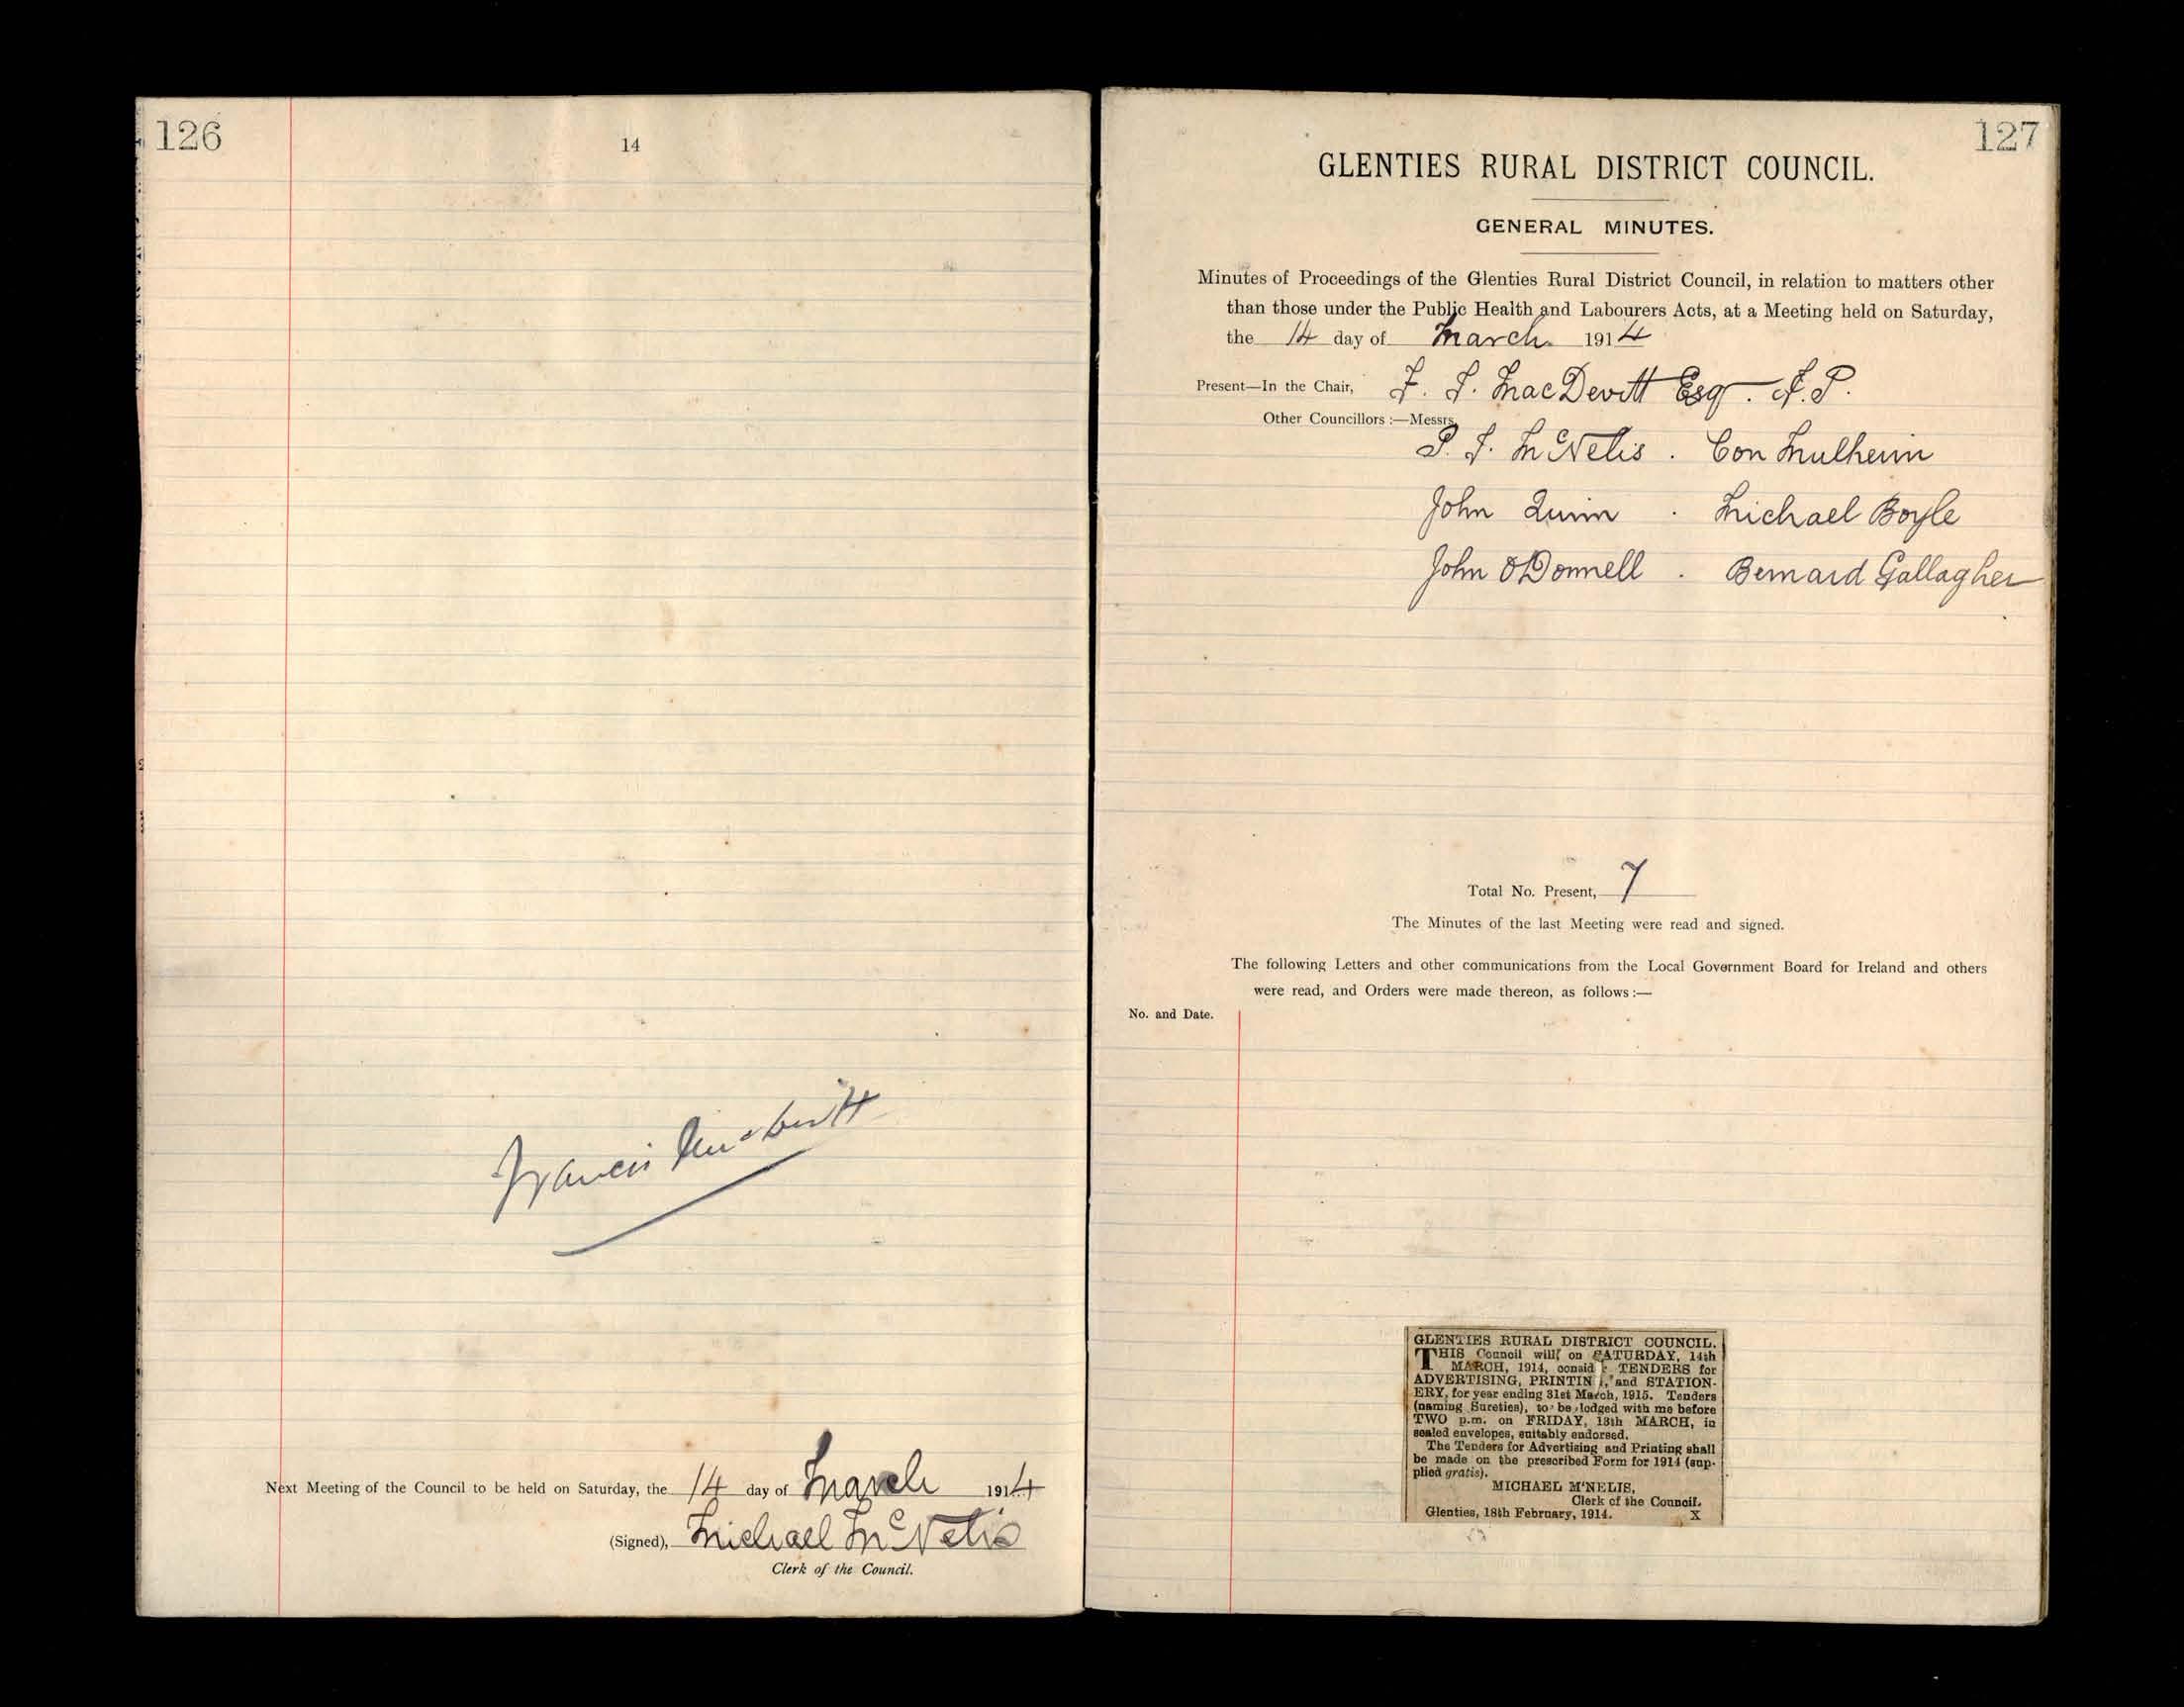 126
14
Francis MacDevitt
Next Meeting of the Council to be held on Saturday, the 14 day of March 1914
(Signed), Michael McNelis
Clerk of the Council.
127
GLENTIES RURAL DISTRICT COUNCIL.
GENERAL MINUTES.
Minutes of Proceedings of the Glenties Rural District Council, in relation to matters other
than those under the Public Health and Labourers Acts, at a Meeting held on Saturday,
the 14 day of March 1914
Present—In the Chair, F. J. MacDevitt Esq. J.P.
Other Councillors :—Messrs.
P. J. McNelis . Con Mulhern
John Quinn . Michael Boyle
John O'Donnell . Bernard Gallagher
Total No. Present, 7
The Minutes of the last Meeting were read and signed.
The following Letters and other communications from the Local Government Board for Ireland and others
were read, and Orders were made thereon, as follows :—
No. and Date.
GLENTIES RURAL DISTRICT COUNCIL.
THIS Council will on SATURDAY, 14th
MARCH, 1914, consid TENDERS for
ADVERTISING, PRINTIN , and STATION-
ERY, for year ending 31st March, 1915. Tenders
(naming Sureties), to be lodged with me before
TWO p.m. on FRIDAY, 13th MARCH, in
sealed envelopes, suitably endorsed.
The Tenders for Advertising and Printing shall
be made on the prescribed Form for 1914 (sup-
plied gratis).
MICHAEL M'NELIS,
Clerk of the Council.
Glenties, 18th February, 1914. X